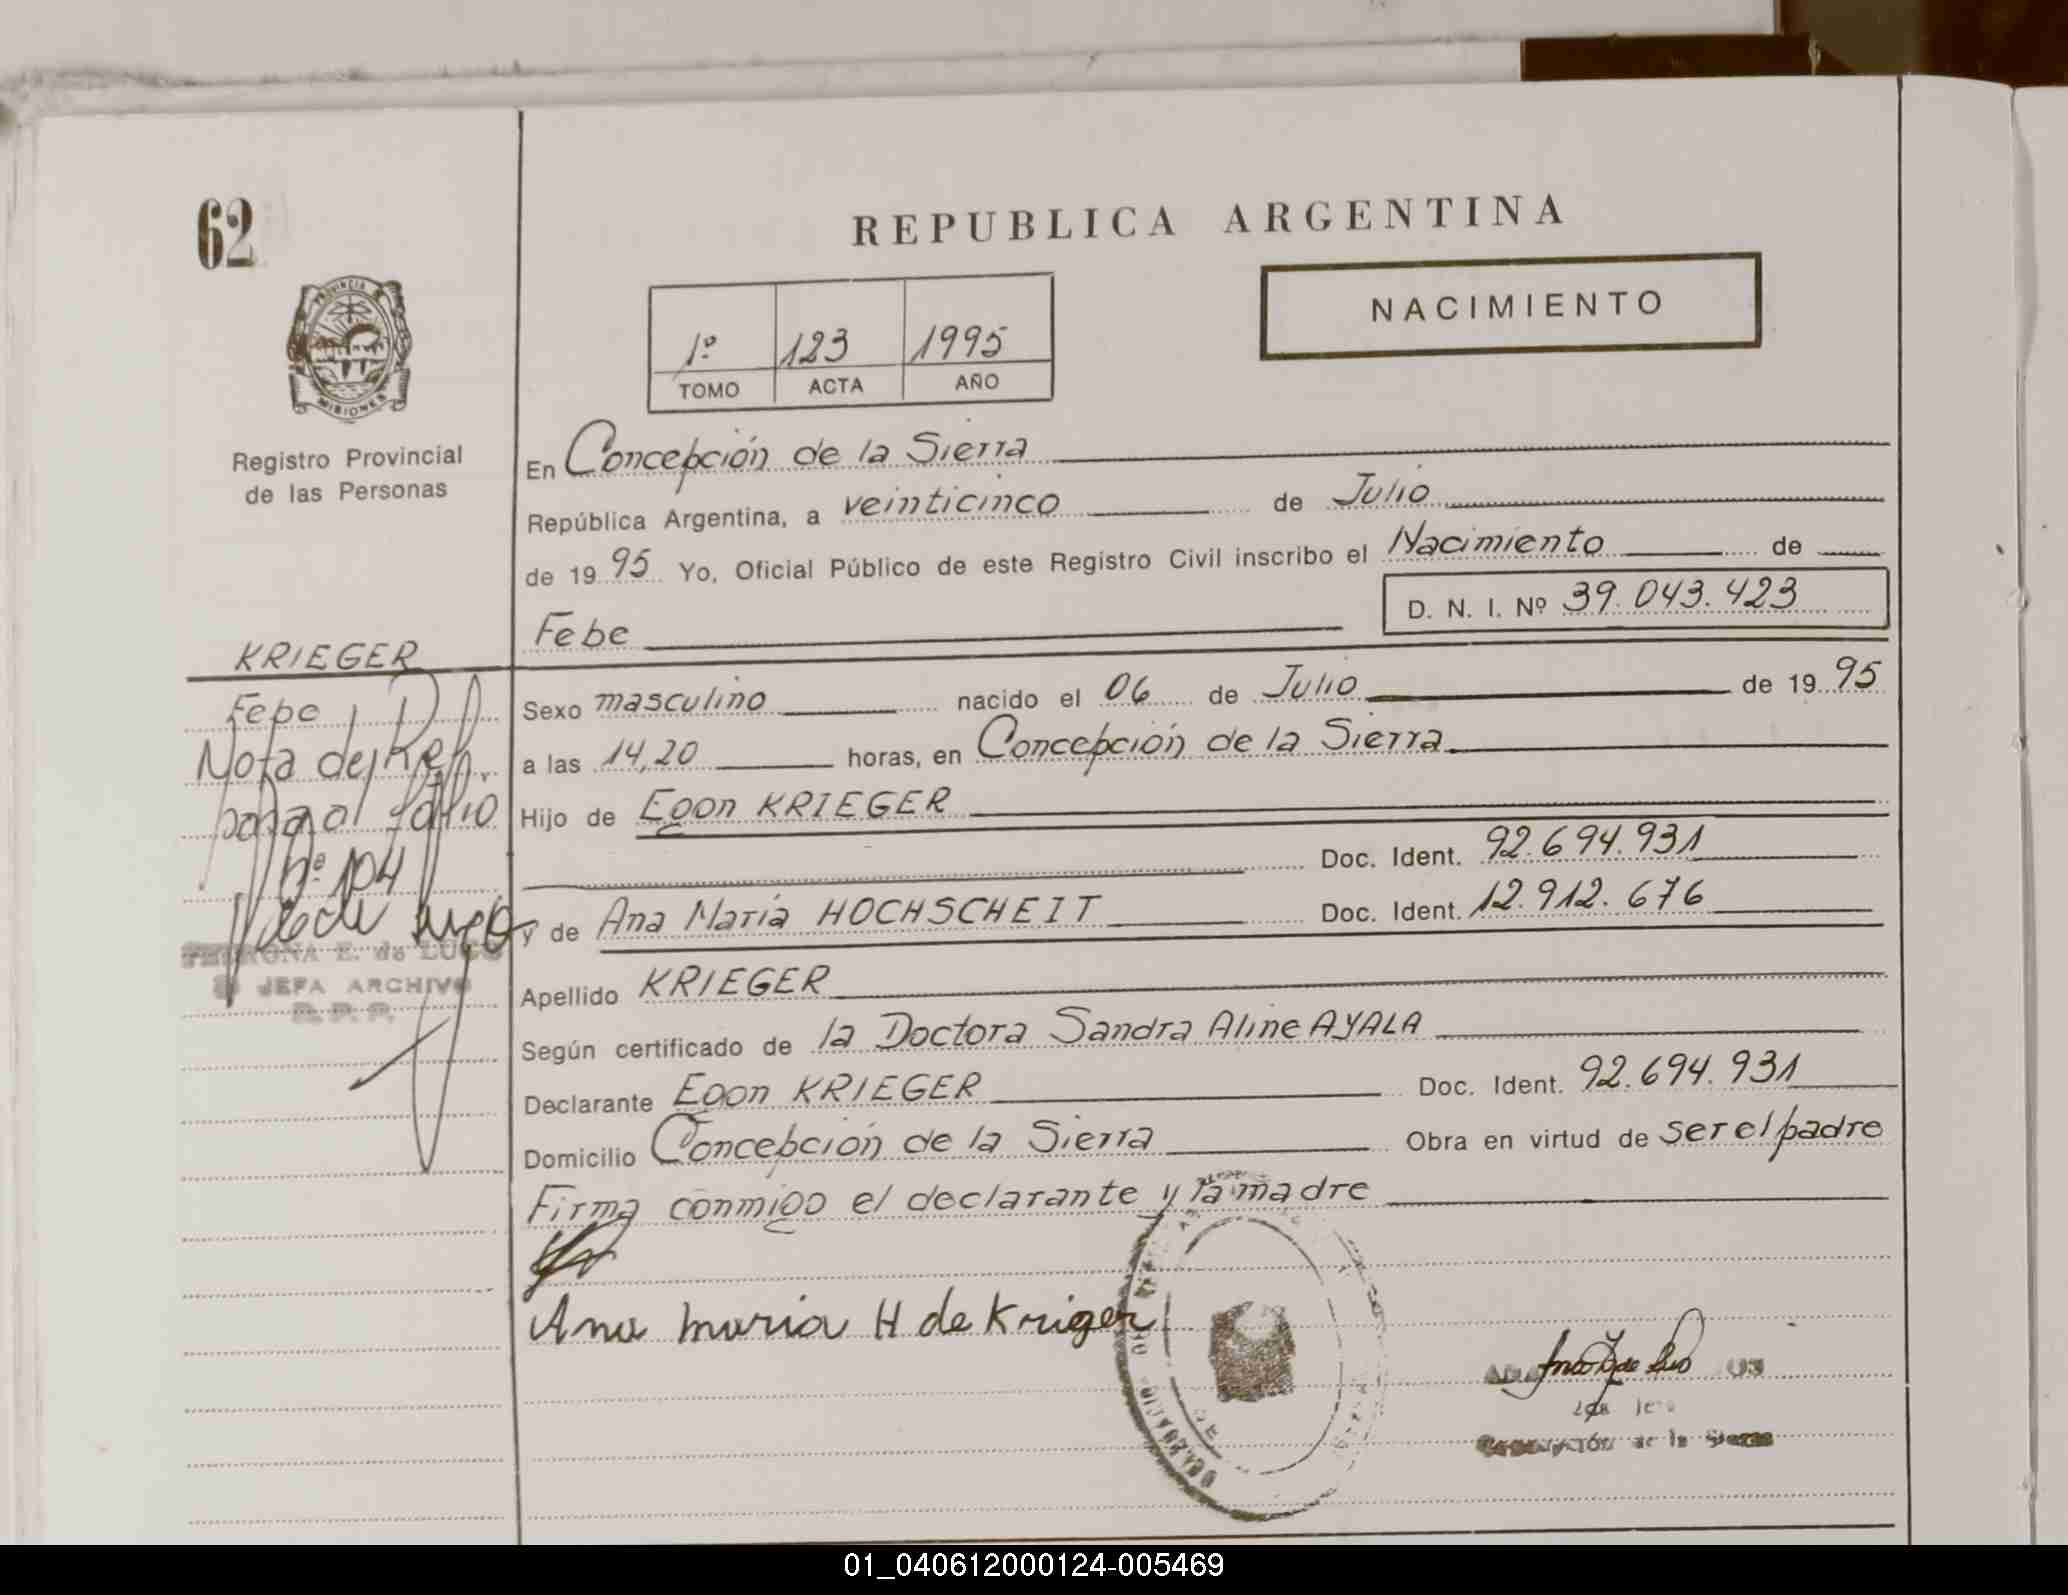 62
REPUBLICA ARGENTINA
NACIMIENTO
1º 123 1995
TOMO ACTA AÑO
PROVINCIA DE
MISIONES
Registro Provincial
de las Personas
En Concepción de la Sierra
República Argentina, a veinticinco de Julio
de 1995 Yo, Oficial Público de este Registro Civil inscribo el Nacimiento de
D. N. I. Nº 39.043.423
Febe
KRIEGER
Febe
Nota de Ref.
para al folio
nº 104
PETRONA E. de LUGO
JEFA ARCHIVO
R. P. P.
Sexo masculino nacido el 06 de Julio de 1995
a las 14,20 horas, en Concepción de la Sierra
Hijo de Egon KRIEGER
Doc. Ident. 92.694.931
y de Ana María HOCHSCHEIT Doc. Ident. 12.912.676
Apellido KRIEGER
Según certificado de la Doctora Sandra Aline AYALA
Declarante Egon KRIEGER Doc. Ident. 92.694.931
Domicilio Concepción de la Sierra Obra en virtud de ser el padre
Firma conmigo el declarante y la madre
Ana maria H de Kriger
de la Sierra
01_040612000124-005469